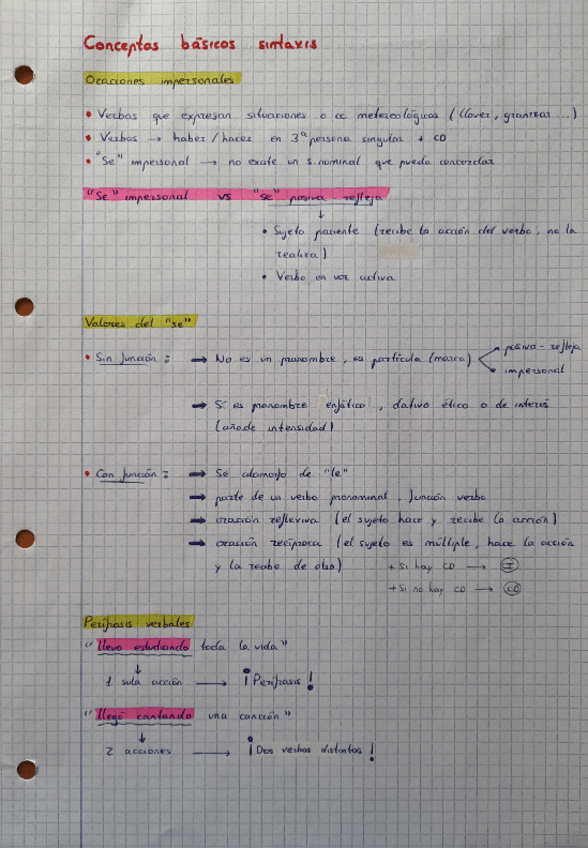 Conceptos básicos sintaxis
Oraciones impersonales
• Verbos que expresan situaciones o cc meteorológicas (llover, granizar ...)
• Verbos → haber / hacer en 3ª persona singular + CD
• "Se" impersonal → no existe un s. nominal que pueda concordar
"Se" impersonal vs "se" pasiva - refleja
↓
• Sujeto paciente (recibe la acción del verbo, no la
realiza)
• Verbo en voz activa
Valores del "se"
• Sin función : → No es un pronombre, es partícula (marca) pasiva - refleja
impersonal
→ Sí es pronombre enfático, dativo ético o de interés
(añade intensidad)
• Con función : → Se alomorfo de "le"
→ parte de un verbo pronominal, función verbo
→ oración reflexiva (el sujeto hace y recibe la acción)
→ oración recíproca (el sujeto es múltiple, hace la acción
y la recibe de otro) + Si hay CD → CI
+ Si no hay CD → CD
Perífrasis verbales
"llevo estudiando toda la vida"
↓
1 sola acción → ¡Perífrasis!
"llegó cantando una canción"
↓
2 acciones → ¡Dos verbos distintos!